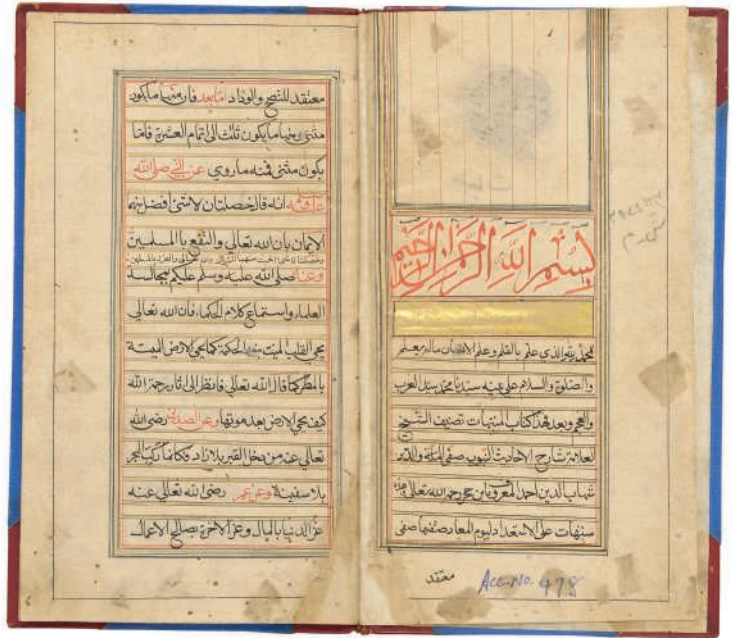 بسم الله الرحمن الرحيم
الحمد لله الذي علم بالقلم وعلم الانسان مالم يعلم
والصلوة والسلام على نبيه سيدنا محمد سيد العرب
والعجم وبعد فهذا كتاب المنبهات تصنيف الشيخ
العلامة شارح الاحاديث النبوية صفي الملة والدين
شهاب الدين احمد المعروف بابن حجر رحمه الله تعالى
منبهات على الاستعداد ليوم المعاد صنفها صفي
معتقد
Acc. No. 478
معتقد للنصح والوداد اما بعد فان منها مايكون
مثنى ومنها مايكون ثلث الى اتمام العشرة فاما
يكون مثنى فمنه ماروي عن النبي صلى الله
انه قال خصلتان لاشئ افضل منهما
الايمان بان الله تعالى والنفع بالمسلمين
وعنه صلى الله عليه وسلم عليكم بمجالسة
العلماء واستماع كلام الحكماء فان الله تعالى
يحيى القلب الميت الحكمة كمايحيى الارض الميتة
بالمطر كما قال الله تعالى فانظر الى اثار رحمة الله
كيف يحيى الارض بعد موتها وعن الصديق رضي الله
تعالى عنه من دخل القبر بلا زاد فكانما ركب البحر
بلا سفينة وعن عمر رضى الله تعالى عنه
عز الدنيا بالمال وعز الاخرة بصالح الاعمال